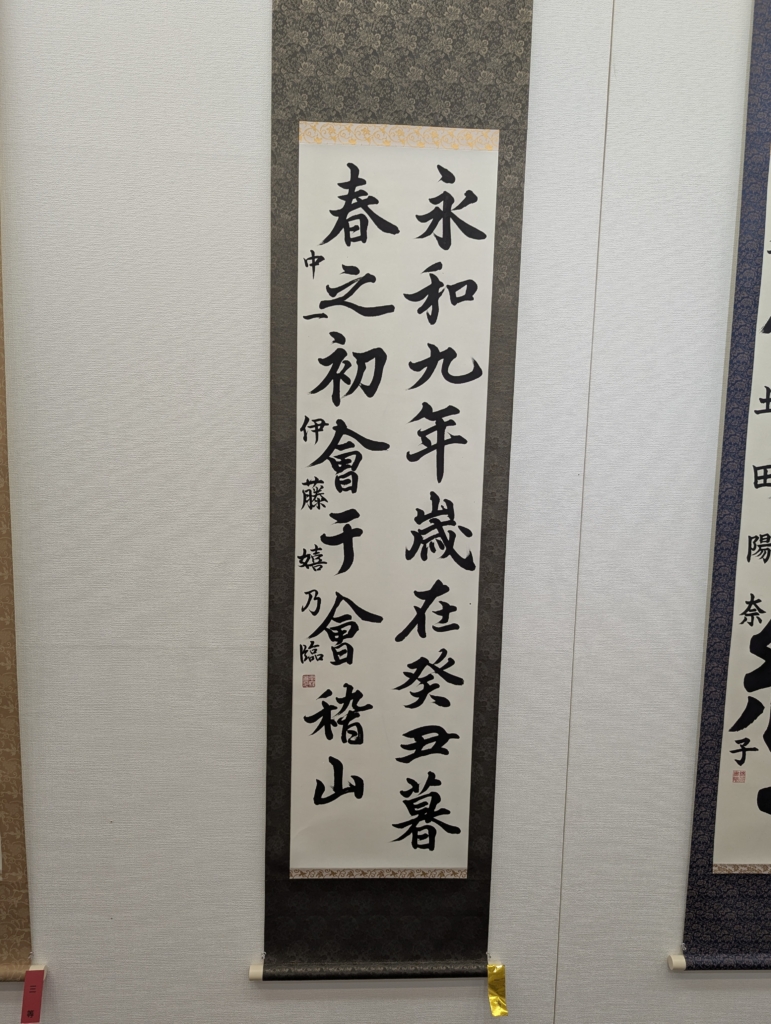 永和九年歳在癸丑暮
春之初會于會稽山
中一 伊藤嬉乃臨
土田陽奈子
三